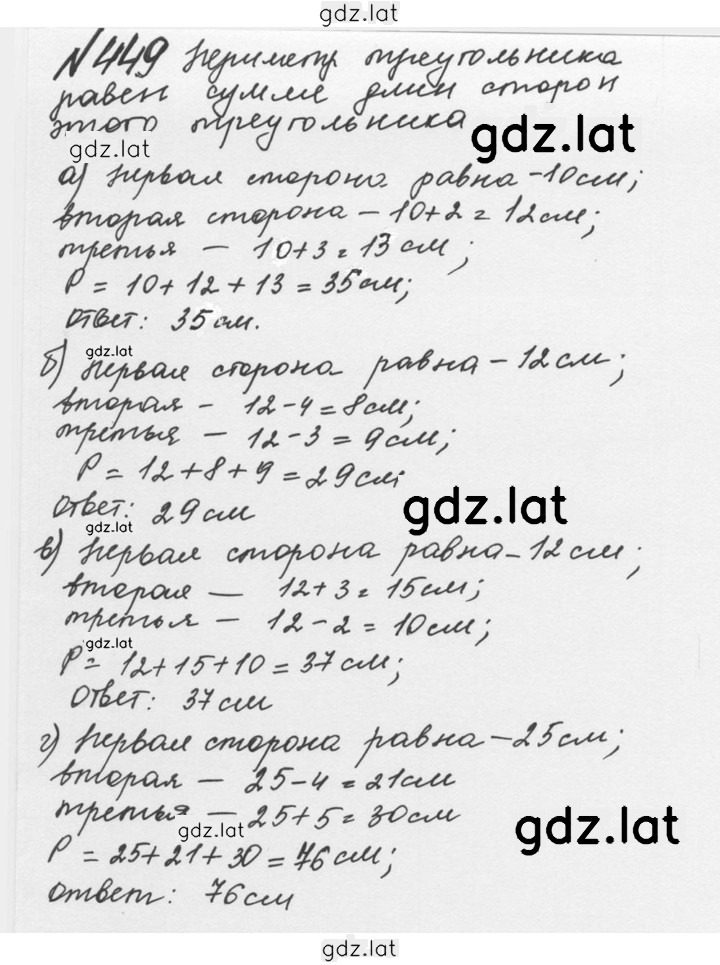 gdz.lat
№449 Периметр треугольника
равен сумме длин сторон
этого треугольника
gdz.lat
gdz.lat
а) первая сторона равна - 10 см;
вторая сторона - 10+2=12 см;
третья - 10+3=13 см;
P = 10+12+13=35 см;
ответ: 35 см.
gdz.lat
б) первая сторона равна - 12 см;
вторая - 12-4=8 см;
третья - 12-3=9 см;
P = 12+8+9=29 см;
ответ: 29 см
gdz.lat
gdz.lat
в) первая сторона равна - 12 см;
вторая - 12+3=15 см;
третья - 12-2=10 см;
gdz.lat
P = 12+15+10=37 см;
ответ: 37 см
г) первая сторона равна - 25 см;
вторая - 25-4=21 см
третья - 25+5=30 см
gdz.lat
gdz.lat
P = 25+21+30=76 см;
ответ: 76 см
gdz.lat